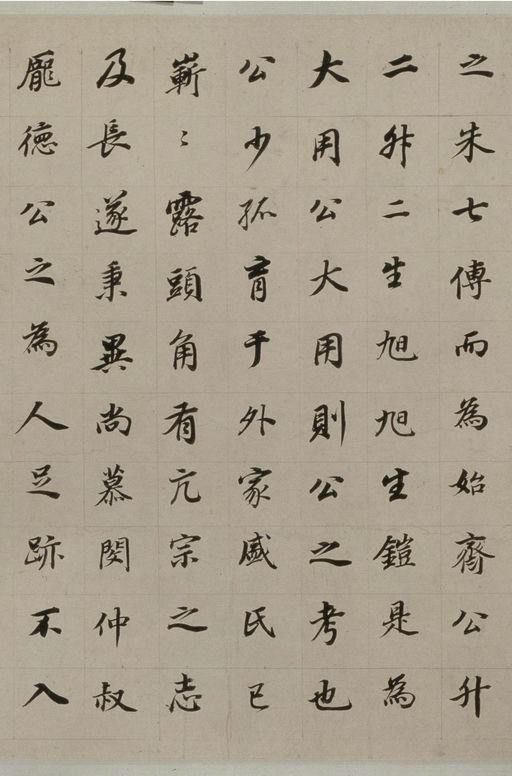 之朱七傳而為始齋公升
二升二生旭旭生鎧是為
大用公大用則公之考也
公少孤育于外家盛氏已
嶄〻露頭角有亢宗之志
及長遂秉異尚慕閔仲叔
龐德公之為人足跡不入